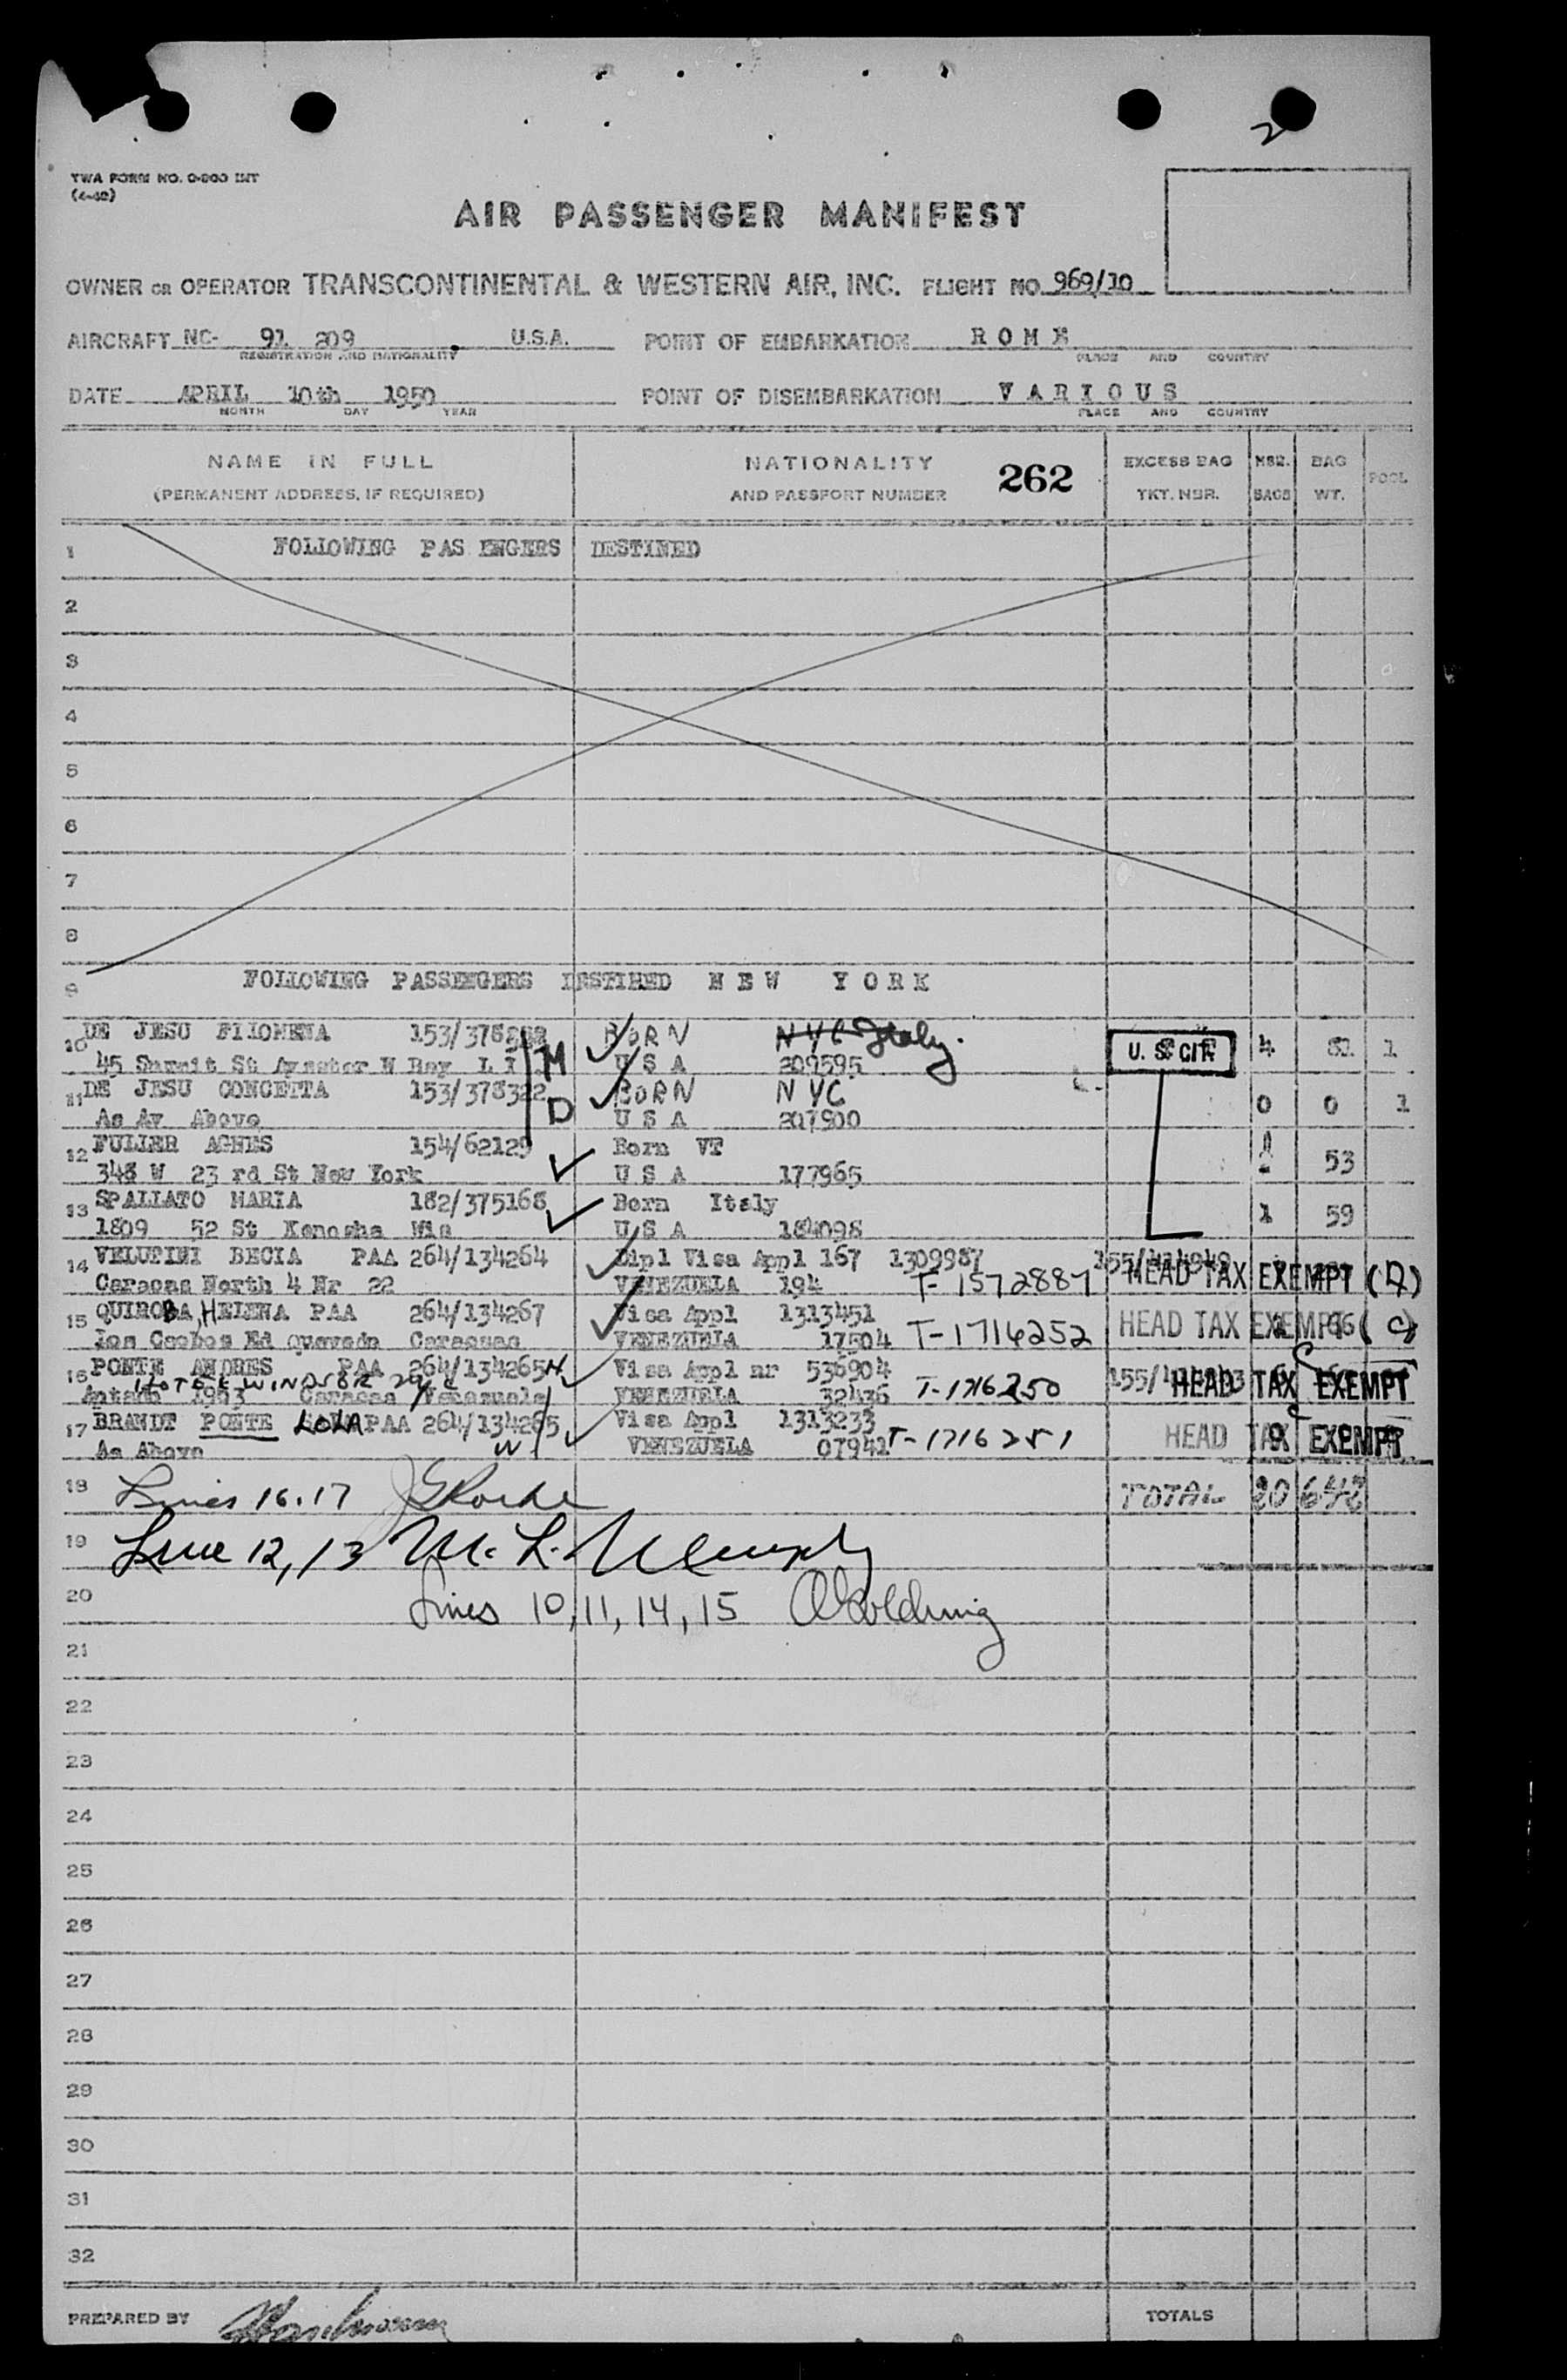 2
TWA FORM NO. 0-800 INT
(4-48)
AIR PASSENGER MANIFEST
OWNER OR OPERATOR TRANSCONTINENTAL & WESTERN AIR, INC. FLIGHT NO 969/10
AIRCRAFT NC- 91 209 U.S.A. POINT OF EMBARKATION ROME
REGISTRATION AND NATIONALITY PLACE AND COUNTRY
DATE APRIL 10th 1950 POINT OF DISEMBARKATION VARIOUS
MONTH DAY YEAR PLACE AND COUNTRY
NAME IN FULL NATIONALITY 262 EXCESS BAG NBR. BAG POOL
(PERMANENT ADDRESS, IF REQUIRED) AND PASSPORT NUMBER TKT. NBR. BAGS WT.
1 FOLLOWING PAS ENGERS DESTINED
2
3
4
5
6
7
8
9 FOLLOWING PASSENGERS DESTINED NEW YORK
10 DE JESU FILOMENA BORN NYC Italy. U. S. CIT. 4 81 1
45 St N Bay L I M U S A 209595
11 DE JESU CONCETTA 153/378322 BORN NYC 0 0 1
As Av Above D U S A 207900
12 FULLER AGNES 154/62129 Born VT 53
348 W 23 rd St New York U S A 177965
13 SPALLATO MARIA 182/375168 Born Italy 1 59
1809 52 St Kenosha Wis U S A 184098
14 VELUTINI BECIA PAA 264/134264 Dipl Visa Appl 167 1309987
Caracas North 4 Nr 22 VENEZUELA 194 T-1572887 HEAD TAX EXEMPT (D)
15 QUIROBA, HELENA PAA 264/134267 Visa Appl 1313451
Los Caobos Ed Quevedo Caracas VENEZUELA 17504 T-1716252 HEAD TAX EXEMPT (C)
16 PONTE ANDRES PAA 264/134265 H Visa Appl nr 536904
HOTEL WINDSOR NYC
1953 Caracas Venezuela VENEZUELA 32436 T-1716250 HEAD TAX EXEMPT C
17 BRANDT PONTE LOLA PAA 264/134265 Visa Appl 1313233
As Above W VENEZUELA 07941 T-1716251 HEAD TAX EXEMPT
18 Lines 16.17 TOTAL 20 648
19 Line 12, 13 M. L.
20 Lines 10, 11, 14, 15 Golding
21
22
23
24
25
26
27
28
29
30
31
32
PREPARED BY TOTALS